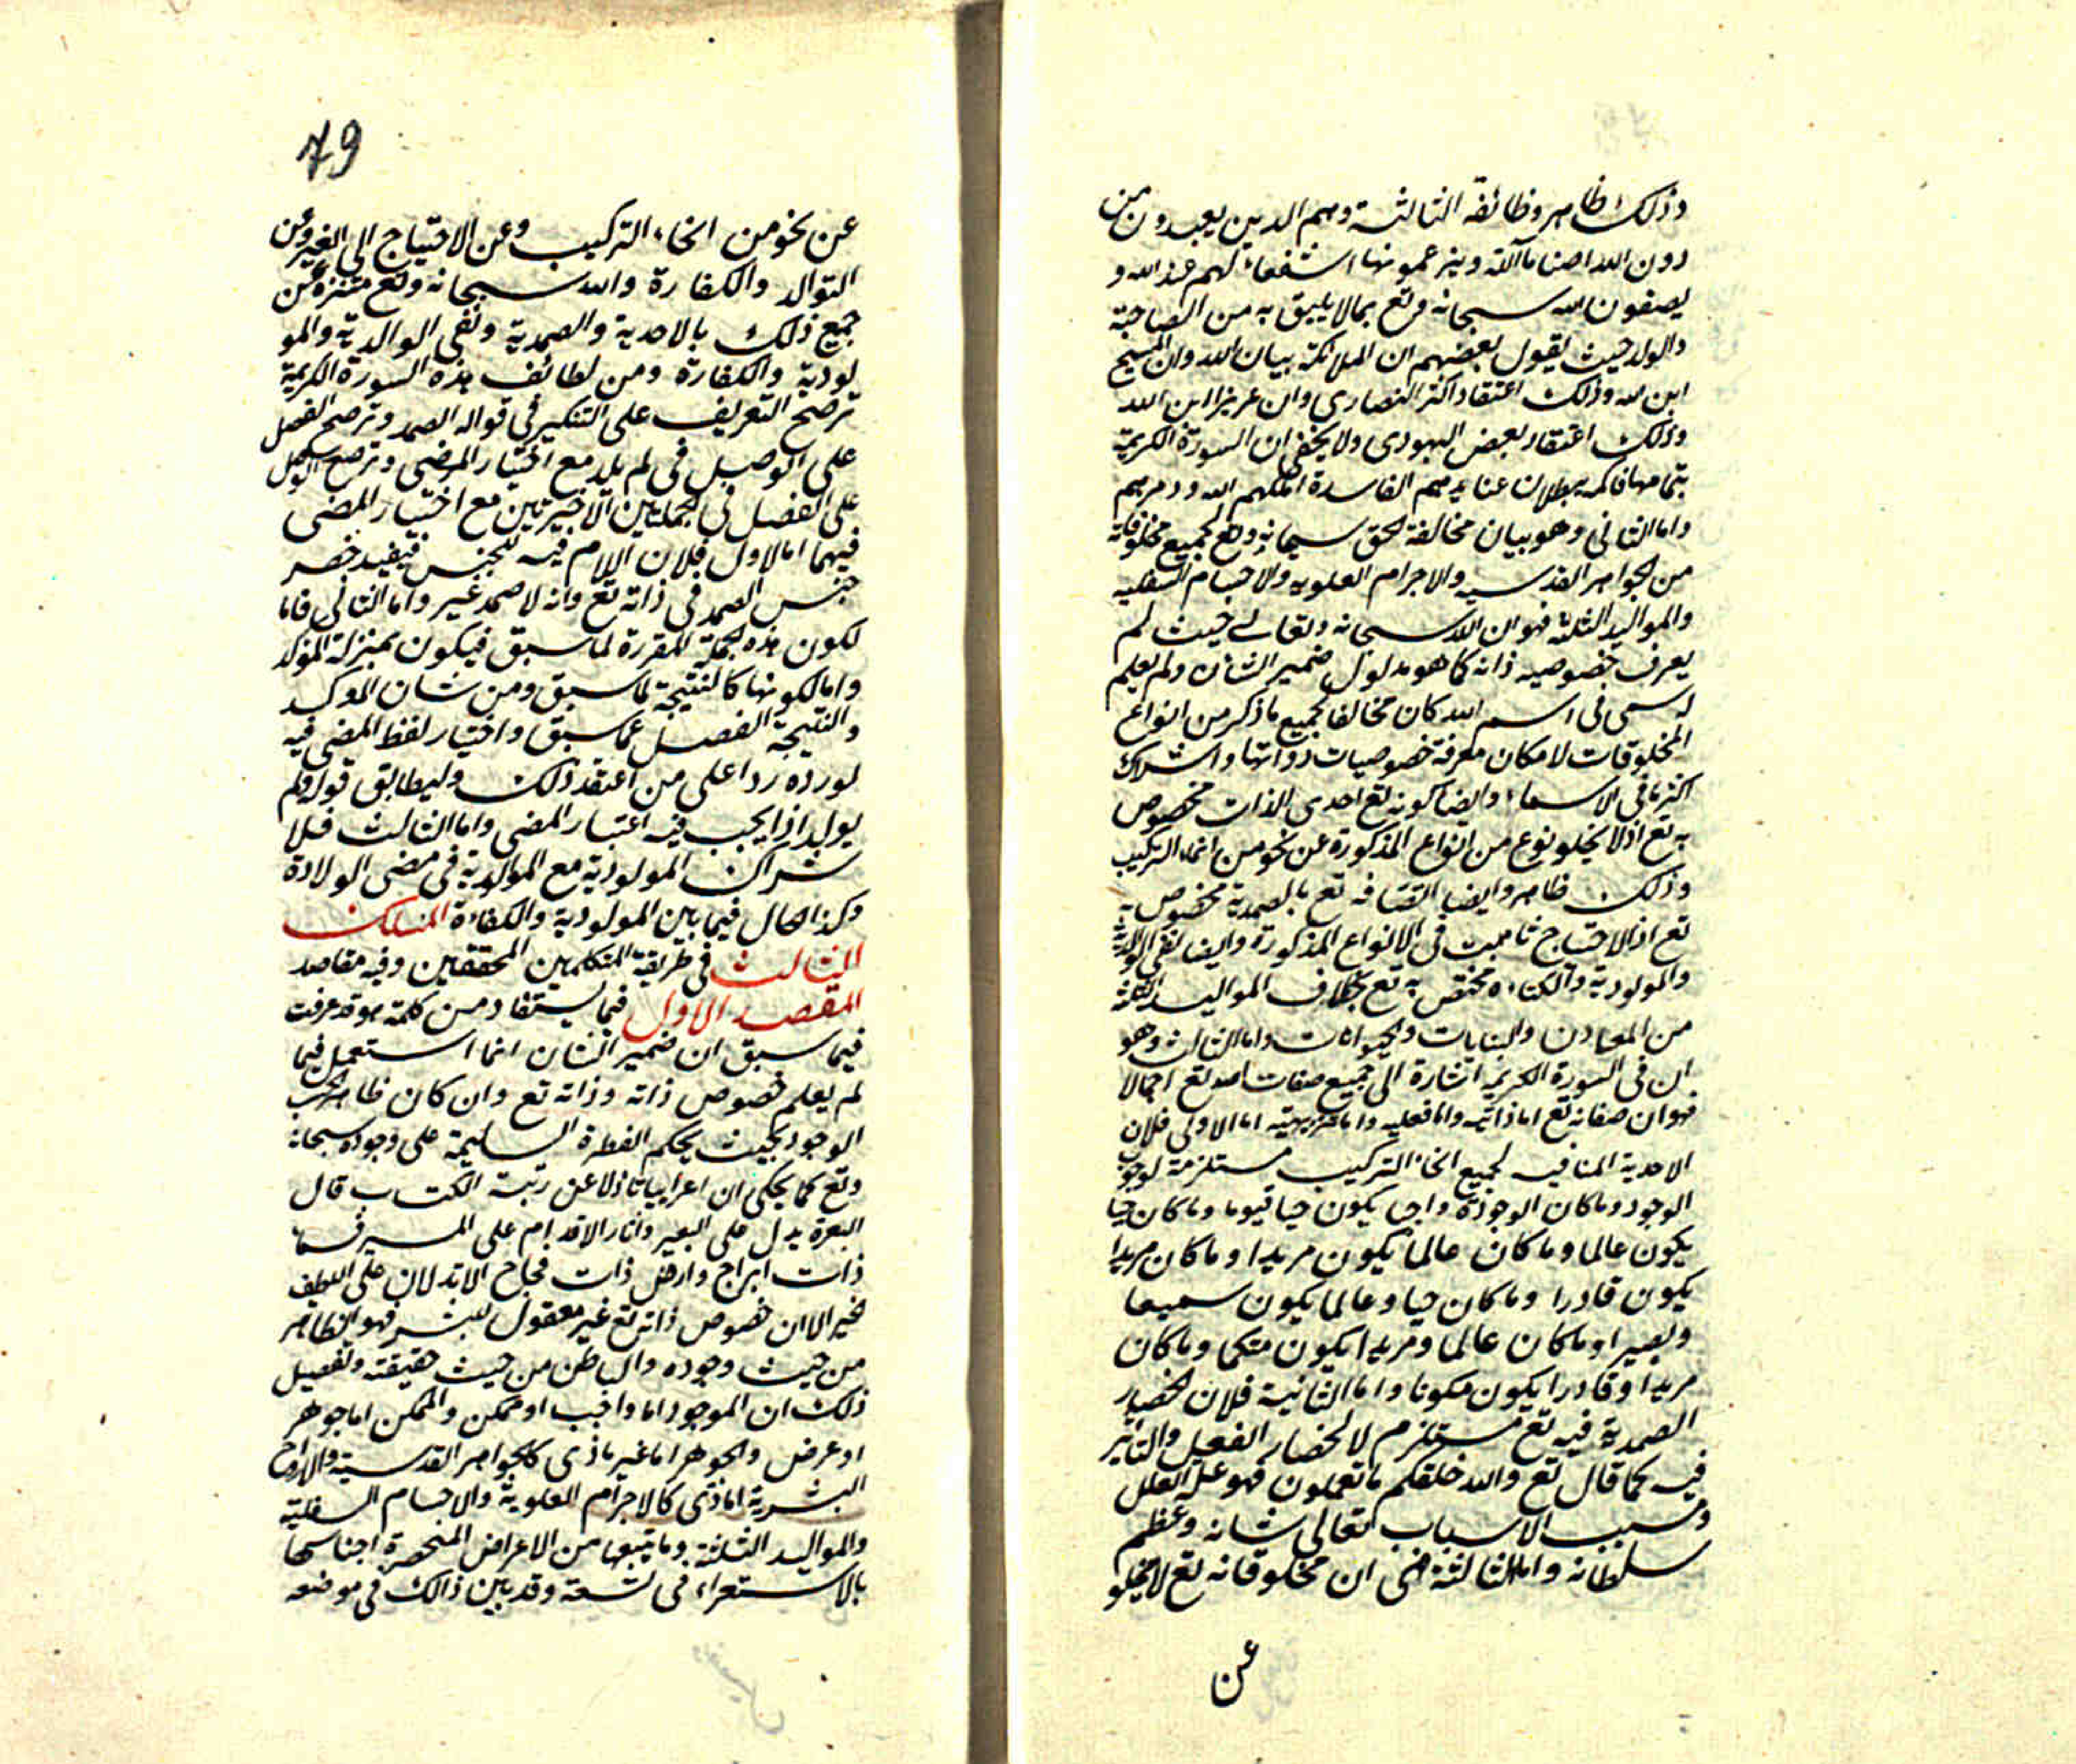 وذلك ظاهر وظائفة الثالثة وهم الدين يعبدون من
دون الله اصناما آلهة ويزعمونها شفعاء لهم عند الله و
يصفون لله سبحانه وتع بمالا يليق به من الصاحبة
والولد حيث يقول بعضهم ان الملائكة بنات الله وان المسيح
ابن لله وذلك اعتقاد اكثر النصارى وان عزيزا ابن الله
وذلك اعتقاد بعض اليهودى ولا يخفى ان السورة الكريمة
بتمامها حاكمة ببطلان عقايدهم الفاسدة اهلكهم الله ودمرهم
واما الثانى وهو بيان مخالفة الحق سبحانه وتع لجميع مخلوقاته
من الجواهر القدسيه والاجرام العلويه والاجسام السفليه
والمواليد الثلثة فهو ان الله سبحانه وتعالى حيث لم
يعرف خصوصيه ذاته كما هو مدلول ضمير الشان ولم يعلم
له سمى فى اسم الله كان مخالفا لجميع ما ذكر من انواع
المخلوقات لامكان معرفة خصوصيات ذواتها واشتراك
اكثرها فى الاسماء وايضا كونه تع احدى الذات مخصوص
به تع اذ لا يخلو نوع من انواع المذكورة عن نحو من انحاء التركيب
وذلك ظاهر وايضا اتصافه تع بالصمدية مخصوص به
تع اذ الاحتياج ثابت فى الانواع المذكورة وايضا نفى الوالدية
والمولودية والكفاءه مختص به تع بخلاف المواليد الثلثة
من المعادن والنباتات والحيوانات واما الثالث وهو
ان فى السورة الكريمة اشارة الى جميع صفات الله تع اجمالا
فهو ان صفاته تع اما ذاتيه واما فعليه واما تنزيهيه اما الاولى فلان
الاحدية المنافيه لجميع انحاء التركيب مستلزمة لوجوب
الوجود وما كان الوجوده واجبا يكون حيا قيوما وما كان حيا
يكون عالما وما كان عالما يكون مريدا وما كان مريدا
يكون قادرا وما كان حيا وعالما يكون سميعا
وبصيرا وما كان عالما ومريدا يكون متكلما وما كان
مريدا وقادرا يكون مكونا واما الثانية فلان انحصار
الصمدية فيه تع مستلزم لانحصار الفعل والتاثير
فيه كما قال تع والله خلقكم ما تعملون فهو علة العلل
ومسبب الاسباب تعالى شانه وعظم
سلطانه واما الثالثة فهى ان مخلوقاته تع لا يخلو
عن
79
عن نحو من انحاء التركيب وعن الاحتياج الى الغير وعن
التوالد والكفارة والله سبحانه وتع متنزه عن
جميع ذلك بالاحدية والصمدية ونفى الوالدية والمو
لودية والكفارة ومن لطائف هذه السورة الكريمة
ترجيح التعريف على التنكير فى قوله الصمد وترجيح الفصل
على الوصل فى لم يلد مع اختيار المضى وترجيح الوصل
على الفصل فى الجملتين الاخيرتين مع اختيار المضى
فيهما اما الاول فلان اللام فيه للجنس فيفيد حصر
جنس الصمد فى ذاته تع وانه لا صمد غيره واما الثانى فاما
لكون هذه الجملة المقررة لما سبق فيكون بمنزلة المؤكد
واما لكونها كالنتيجة لما سبق ومن شان الموكد
والنتيجة الفصل عما سبق واختيار لفظ المضى فيه
لورده ردا على من اعتقد ذلك وليطابق قوله ولم
يولد اذ ايجب فيه اعتبار المضى واما الثالث فلا
شتراك المولودية مع المولودية فى مضى الولادة
وكذا الحال فيما بين المولودية والكفاءة المسلك
الثالث فى طريقة المتكلمين المحققين وفيه مقاصد
المقصد الاول فيما يستفاد من كلمة هو قد عرفت
فيما سبق ان ضمير الشان انما استعمل فيما
لم يعلم خصوص ذاته وذاته تع وان كان ظاهر بحسب
الوجود بحيث يحكم الفطرة السليمة على وجوده سبحانه
وتع كما يحكى ان اعرابيا نازلا عن رتبة الكتاب قال
البعرة يدل على البعير واثار الاقدام على المسير فسماء
ذات ابراج وارض ذات فجاج الا تدلان على اللطيف
خبير الا ان خصوص ذاته تع غير معقول للبشر فهو الظاهر
من حيث وجوده والباطن من حيث حقيقته وتفصيل
ذلك ان الموجود اما واجب او ممكن والممكن اما جوهر
او عرض والجوهر اما غير ماذى كالجواهر القدسية والارواح
البشرية اماذى كالاجرام العلوية والاجسام السفلية
والمواليد الثلثة وما يتبعها من الاعراض المنحصرة اجناسها
بالاستقراء فى تسعة وقد بين ذالك فى موضعه